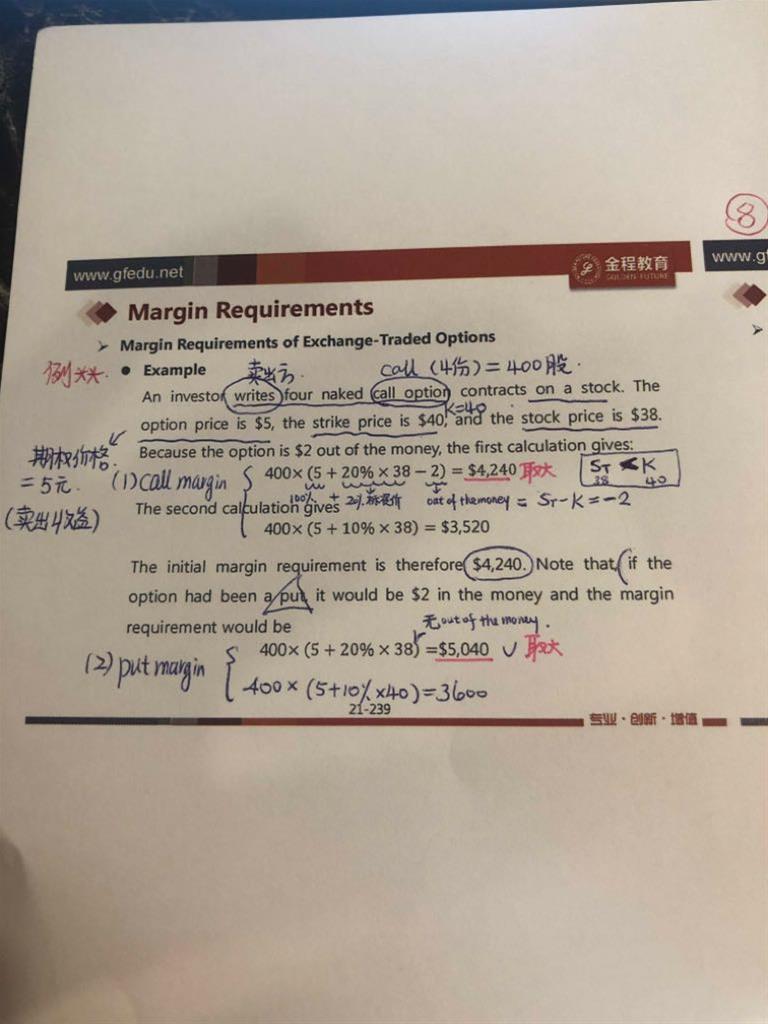 8
www.gfedu.net
金程教育
GOLDEN FUTURE
www.gf
Margin Requirements
➢ Margin Requirements of Exchange-Traded Options
例
● Example
卖出方
call (4份) = 400股.
An investor writes four naked call option contracts on a stock. The
K=40
option price is $5, the strike price is $40, and the stock price is $38.
期权价格
= 5元.
(卖出收益)
Because the option is $2 out of the money, the first calculation gives:
(1) call margin
400× (5 + 20% × 38 − 2) = $4,240 取大
ST < K
38 40
100% + 20%标的价 out of the money = ST - K = -2
The second calculation gives
400× (5 + 10% × 38) = $3,520
The initial margin requirement is therefore $4,240. Note that, if the
option had been a put it would be $2 in the money and the margin
requirement would be
无out of the money.
(2) put margin
400× (5 + 20% × 38) =$5,040 ✓ 取大
400 × (5+10%×40)=3600
21-239
专业·创新·增值